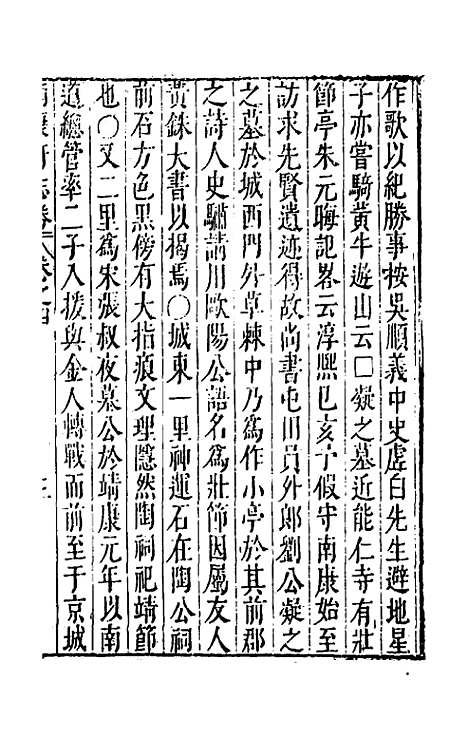 作歌以紀勝事按吳順義中史虛白先生避地星
子亦嘗騎黃牛遊山云□凝之墓近能仁寺有壯
節亭朱元晦記畧云淳熙巳亥予假守南康始至
訪求先賢遺迹得故尚書屯田員外郎劉公凝之
之墓於城西門外草棘中乃爲作小亭於其前郡
之詩人史驌請用歐陽公語名爲壯節因屬友人
黃銖大書以揭焉○城東一里神運石在陶公祠
前石方色黑傍有大指痕文理隱然陶祠祀靖節
也○又二里爲宋張叔夜墓公於靖康元年以南
道總管率二子入援與金人轉戰而前至于京城
南康府志 卷之四 三